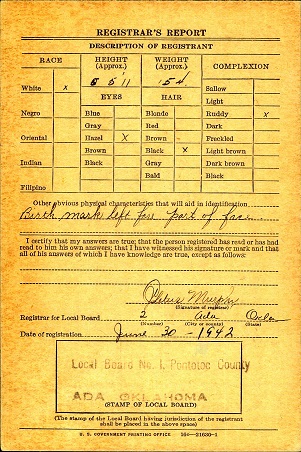 REGISTRAR'S REPORT
DESCRIPTION OF REGISTRANT
RACE HEIGHT (Approx.) WEIGHT (Approx.) COMPLEXION
5'11 154
White x Sallow
EYES HAIR Light
Negro Blue Blonde Ruddy x
Gray Red Dark
Oriental Hazel X Brown Freckled
Brown Black X Light brown
Indian Black Gray Dark brown
Bald Black
Filipino
Other obvious physical characteristics that will aid in identification
Birth mark left fore part of face
I certify that my answers are true; that the person registered has read or has had
read to him his own answers; that I have witnessed his signature or mark and that
all of his answers of which I have knowledge are true, except as follows:
Murphy
(Signature of registrar)
Registrar for Local Board 2 Ada Okla
(Number) (City or county) (State)
Date of registration June 30 1942
Local Board No. 1, Pontotoc County
ADA OKLAHOMA
(STAMP OF LOCAL BOARD)
(The stamp of the Local Board having jurisdiction of the registrant
shall be placed in the above space)
U. S. GOVERNMENT PRINTING OFFICE 16—21630-1